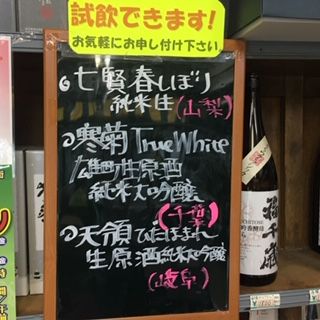 試飲できます!
お気軽にお申し付け下さい。
七賢春しぼり
純米生(山梨)
寒菊 True White
雄町生原酒
純米大吟醸
(千葉)
天領ひだほまれ
生原酒純米吟醸
(岐阜)
福千歳